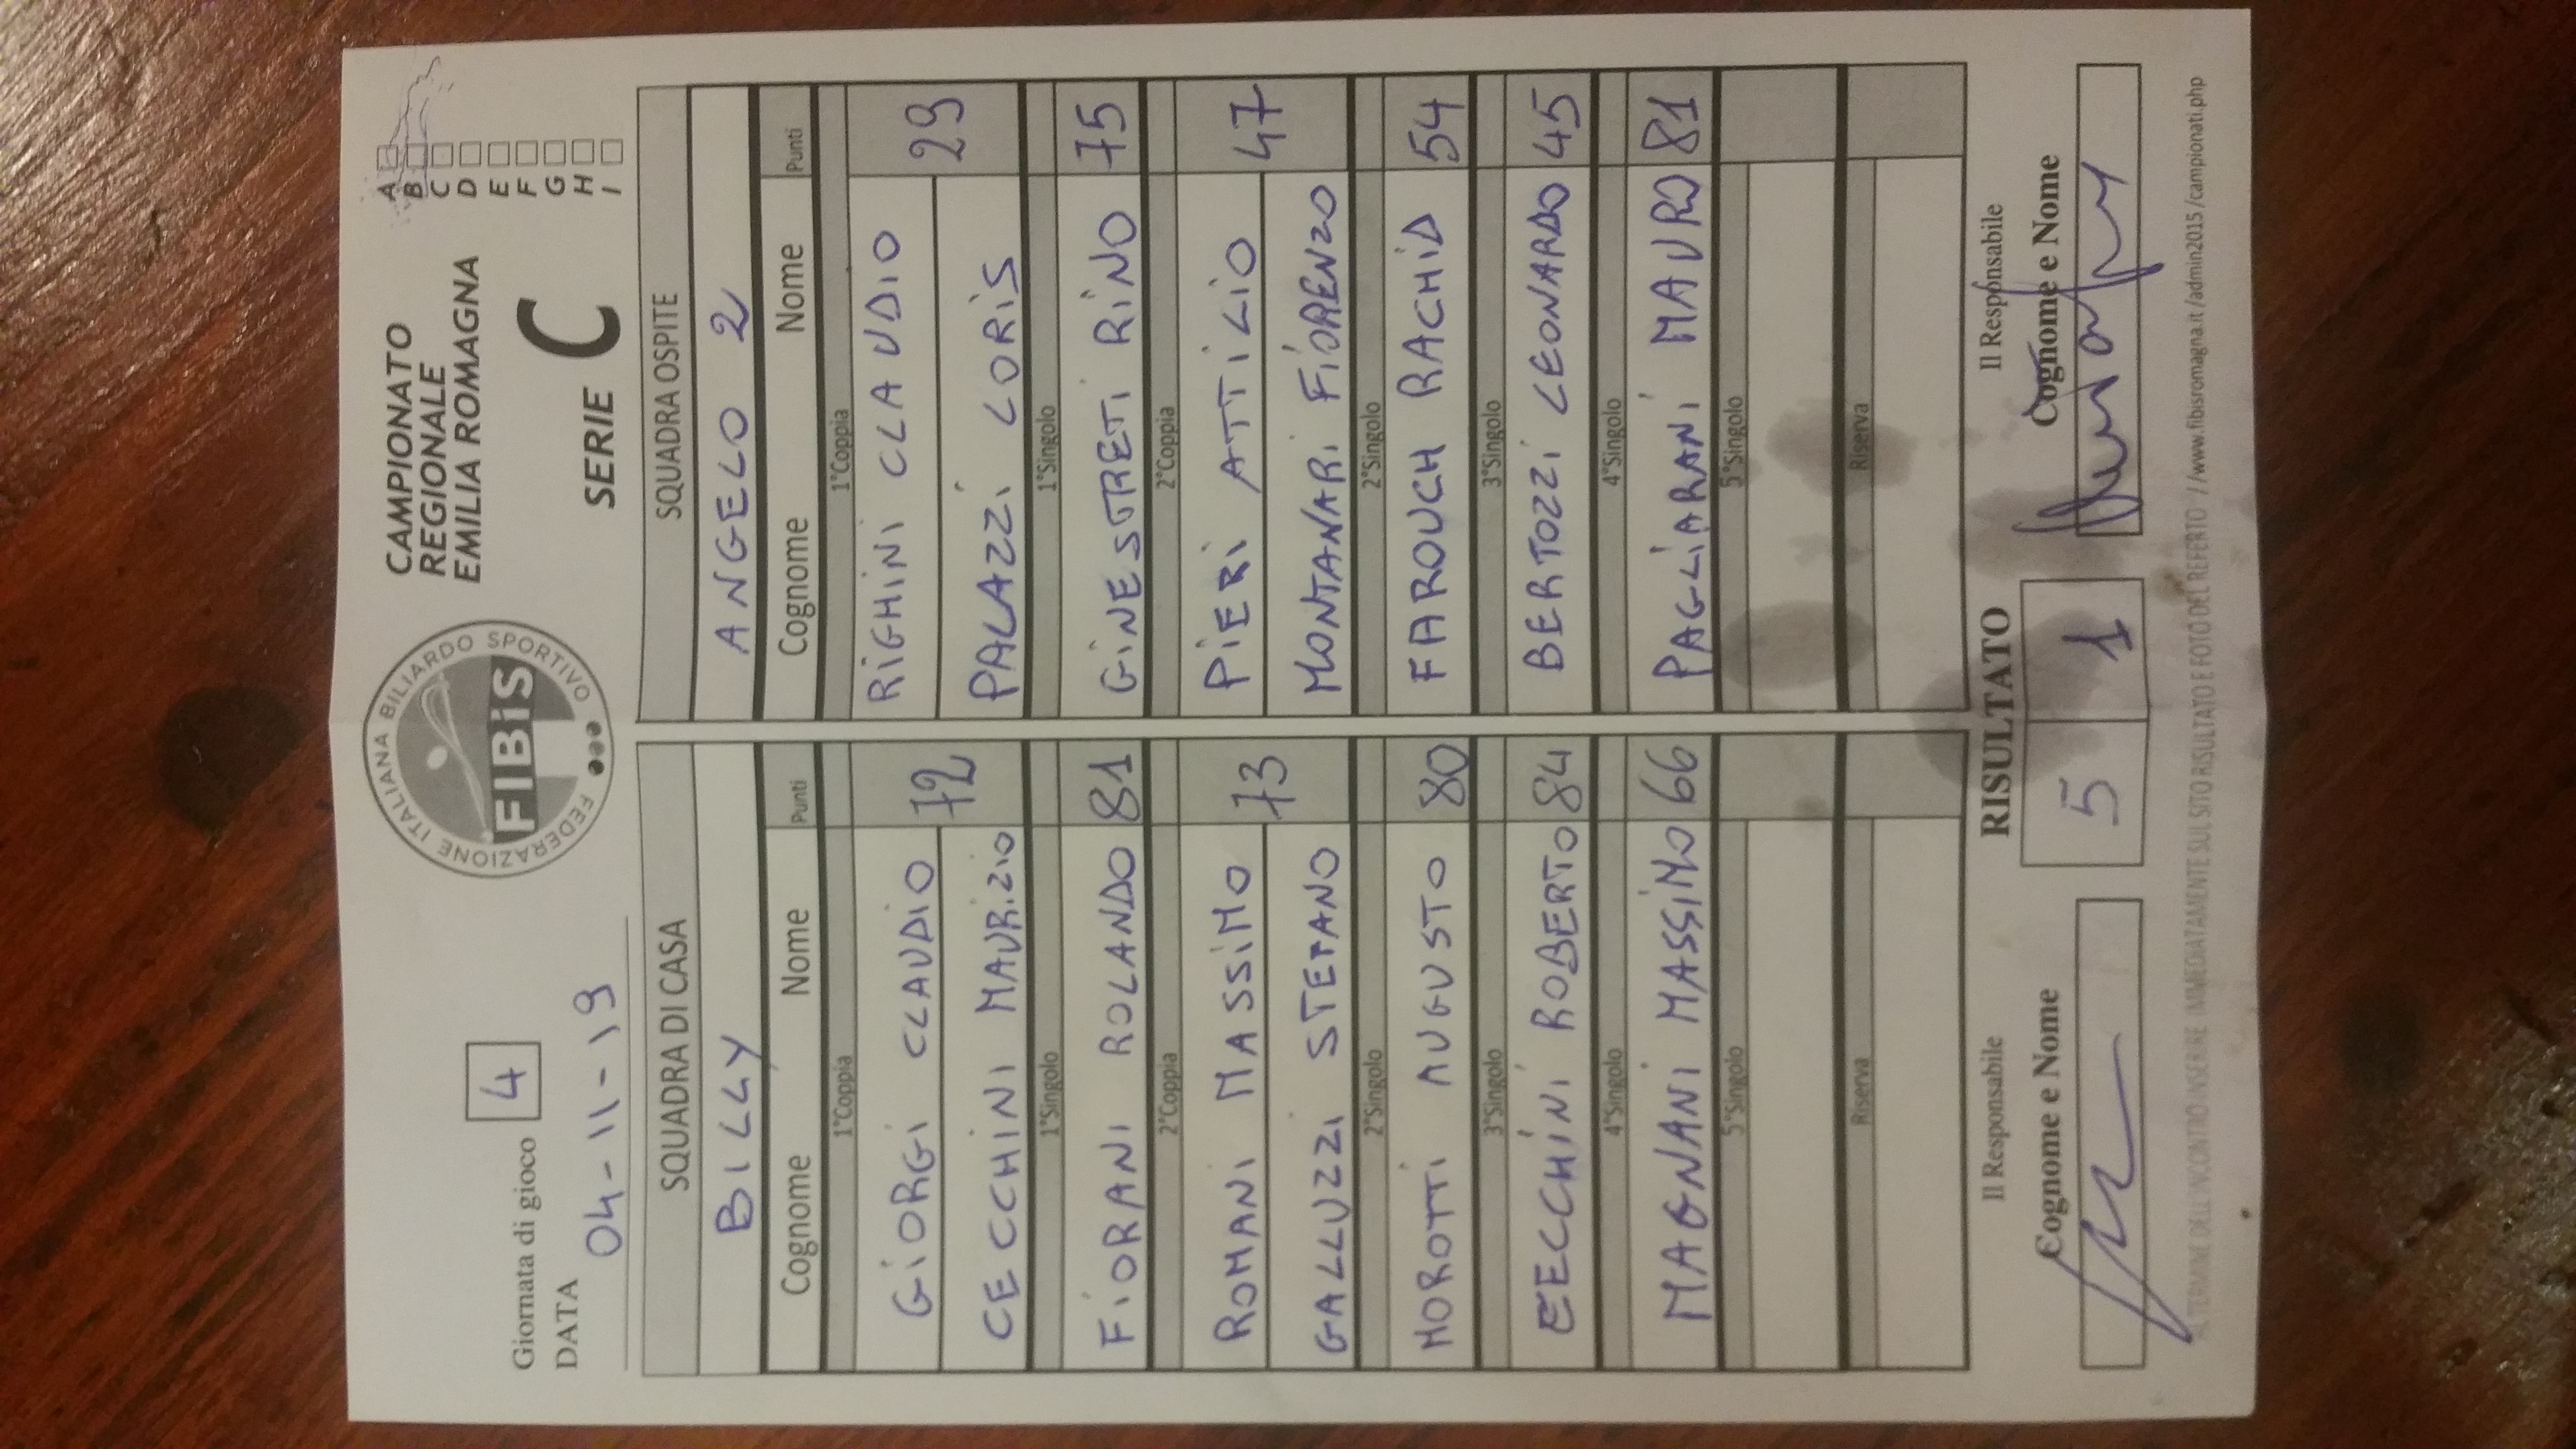 Giornata di gioco 4
DATA 04-11-19
FEDERAZIONE ITALIANA BILIARDO SPORTIVO
FIBiS
CAMPIONATO
REGIONALE
EMILIA ROMAGNA
SERIE C
A
B
C
D
E
F
G
H
I
SQUADRA DI CASA
BILLY
Cognome Nome Punti
1°Coppia
GiORGi CLAUDiO 72
CECCHINI MAURiZiO
1°Singolo
FiORANI ROLANDO 81
2°Coppia
ROMANI MASSiMO 73
GALLUZZI STEFANO
2°Singolo
MOROTTi AUGUSTO 80
3°Singolo
CECCHiNi ROBERTO 84
4°Singolo
MAGNANi MASSiMO 66
5°Singolo
Riserva
SQUADRA OSPITE
ANGELO 2
Cognome Nome Punti
1°Coppia
RiGHiNi CLAUDIO 29
PALAZZi LORiS
1°Singolo
GiNESTRETi RiNO 75
2°Coppia
PiERi ATTiLiO 47
MONTANARi FiORENZO
2°Singolo
FAROUCH RACHiD 54
3°Singolo
BERTOZZi LEONARDO 45
4°Singolo
PAGLiARANi MAURO 81
5°Singolo
Riserva
Il Responsabile
Cognome e Nome
RISULTATO
5 1
Il Responsabile
Cognome e Nome
AL TERMINE DELL'INCONTRO INSERIRE IMMEDIATAMENTE SUL SITO RISULTATO E FOTO DEL REFERTO //www.fibisromagna.it/admin2015/campionati.php